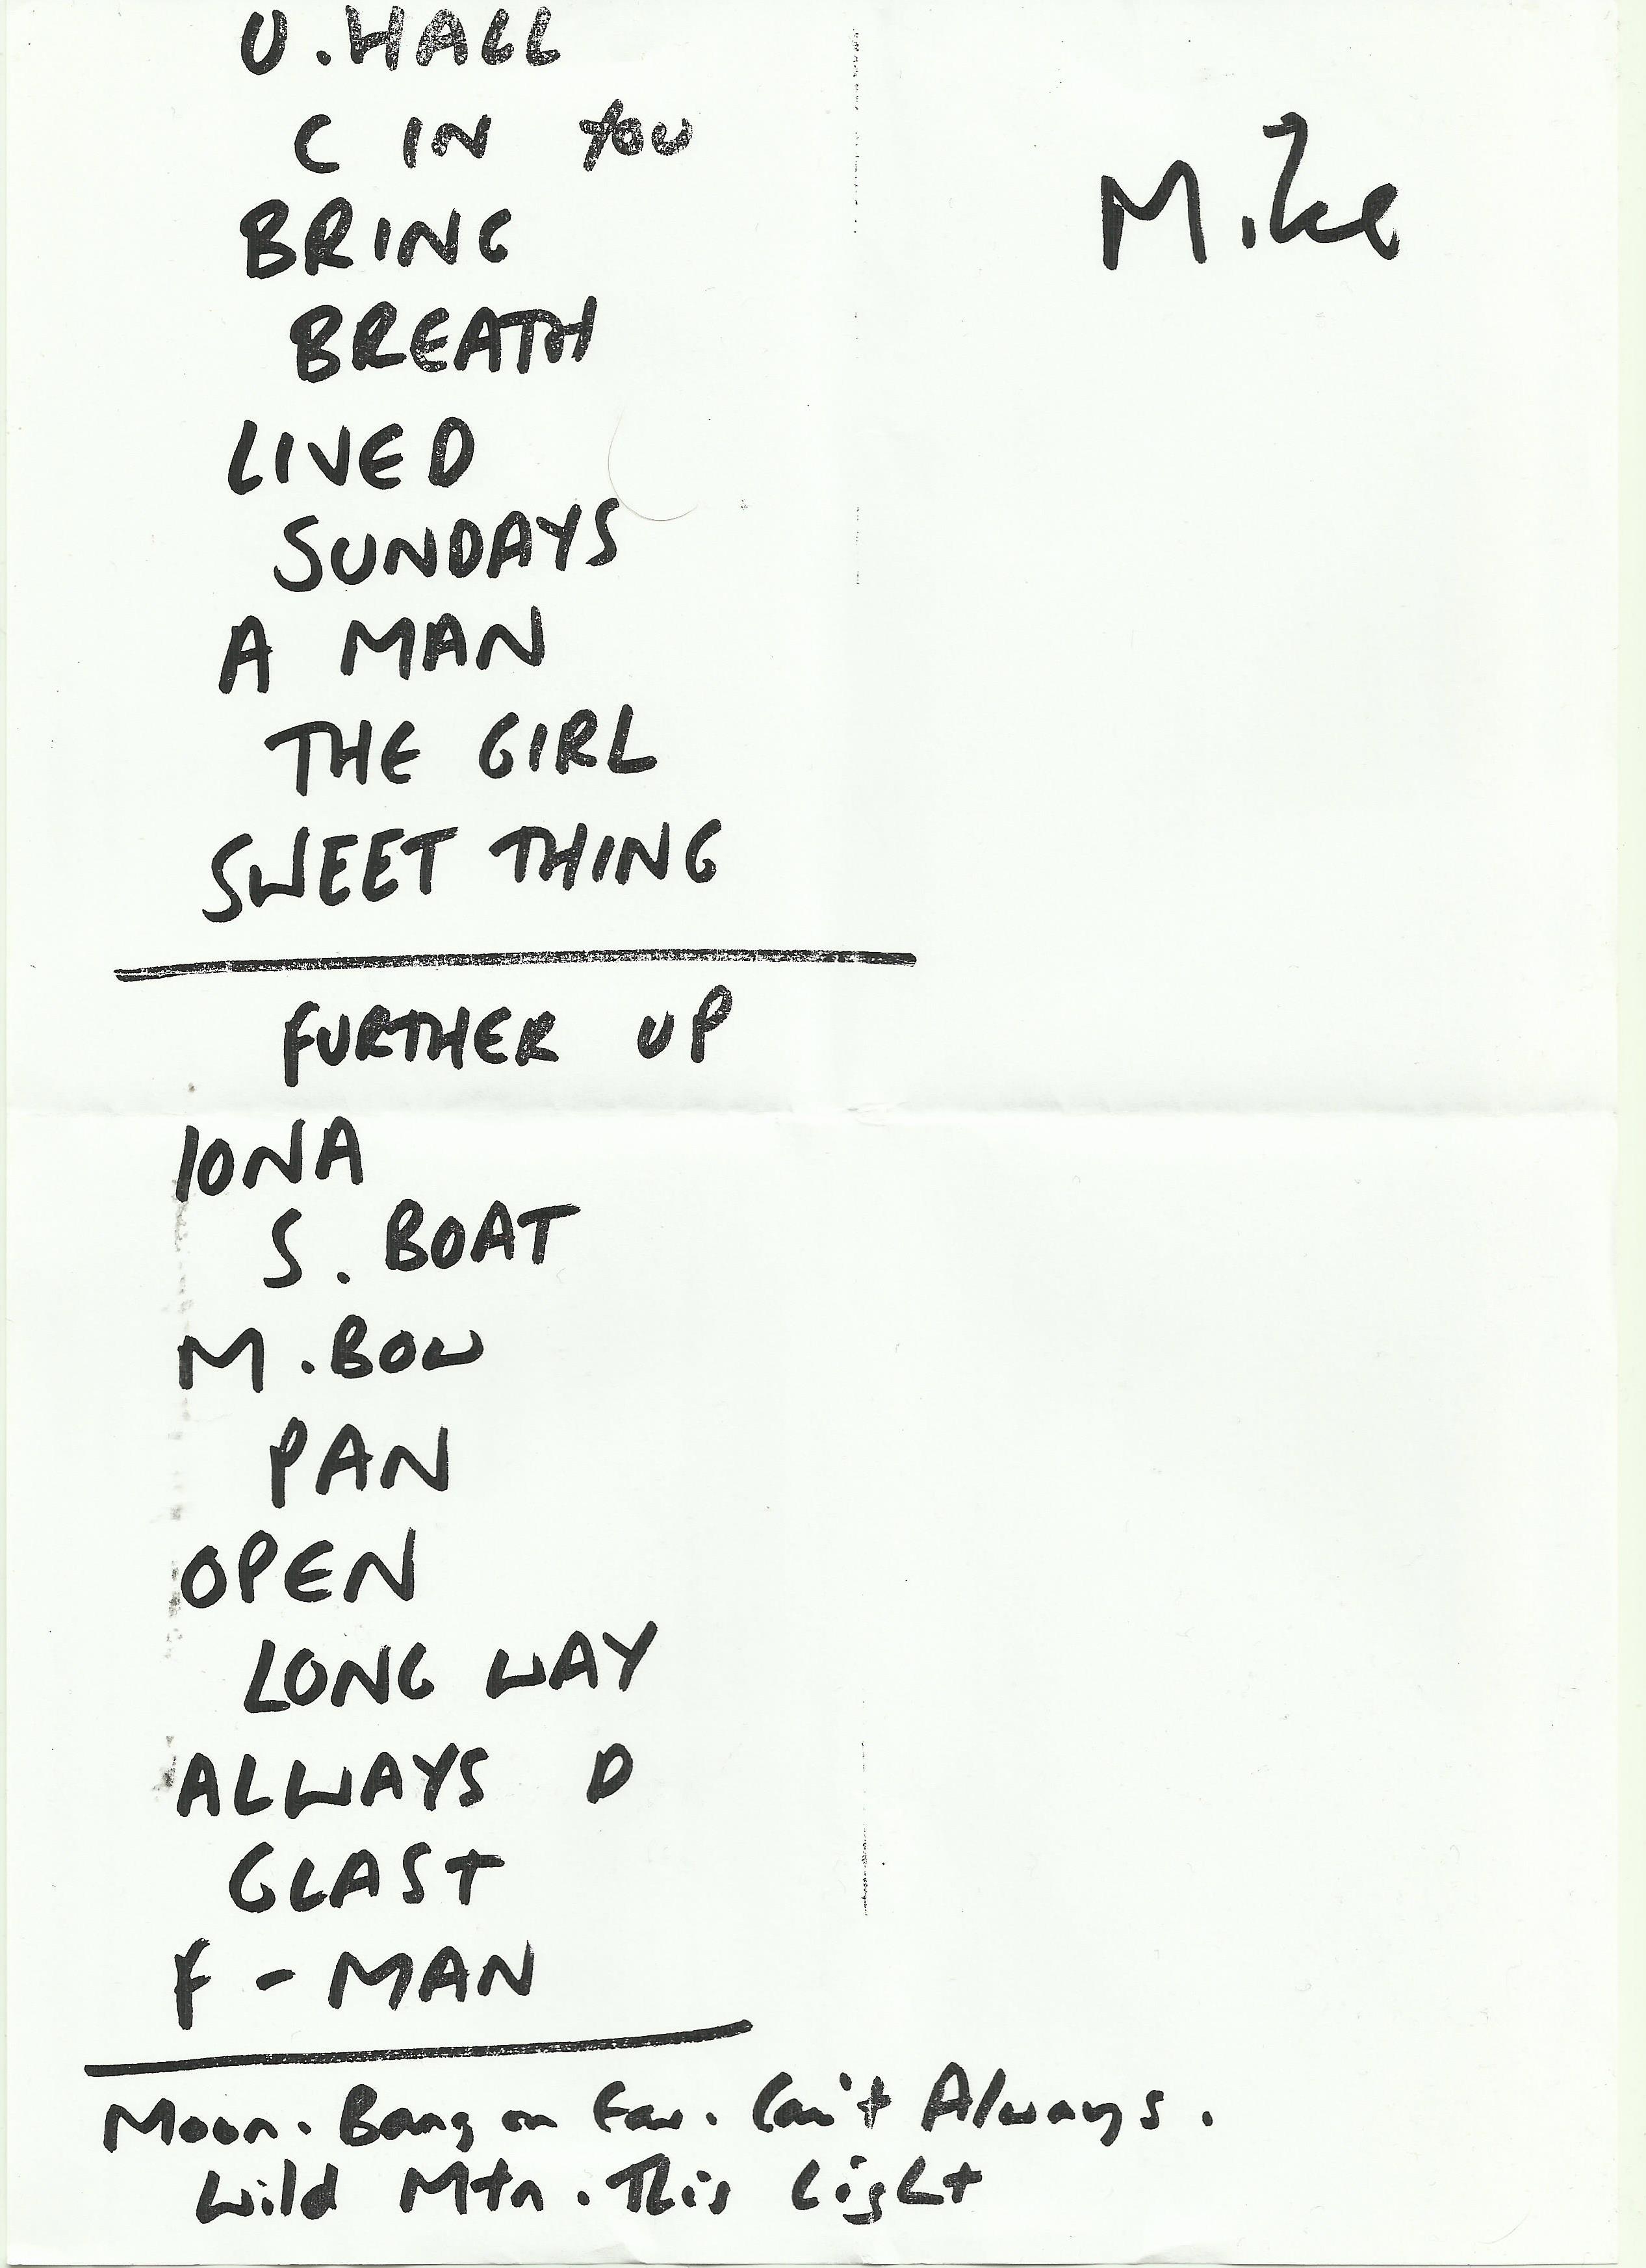 U. HALL
C IN YOU
Mike
BRING
BREATH
LIVED
SUNDAYS
A MAN
THE GIRL
SWEET THING
FURTHER UP
IONA
S. BOAT
M. BOW
PAN
OPEN
LONG WAY
ALWAYS D
GLAST
F - MAN
Moon. Bang on Ear. Can't Always.
Wild Mtn. This Light